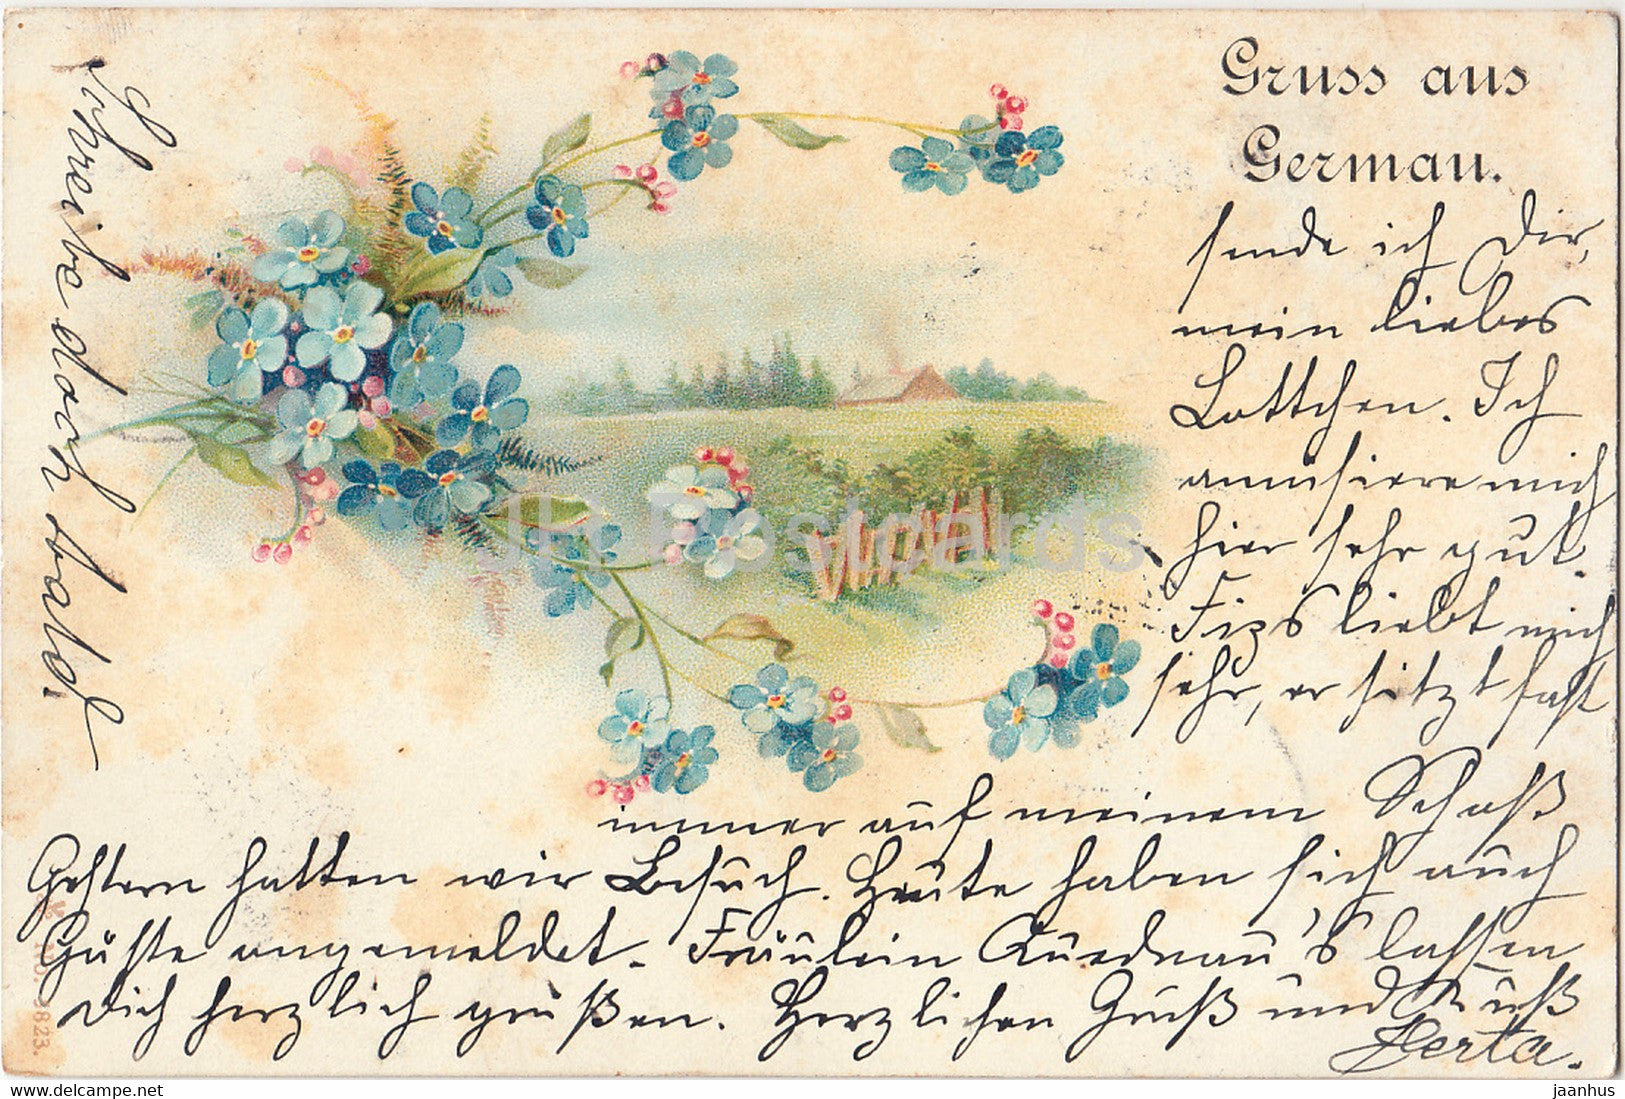 Gruss aus
German.
sende ich Dir,
mein liebes
Lottchen. Ich
amüsiere mich
hier sehr gut.
Fips liebt mich
sehr, er sitzt fast
immer auf meinem Schoß
Gestern hatten wir Besuch. Heute haben sich auch
Güste angemeldet. Fräulein Quednau's lassen
Dich herzlich grüßen. Herzlichen Gruß und Kuß
Herta.
Schreibe doch bald.
8823.
JH Postcards
www.delcampe.net
jaanhus